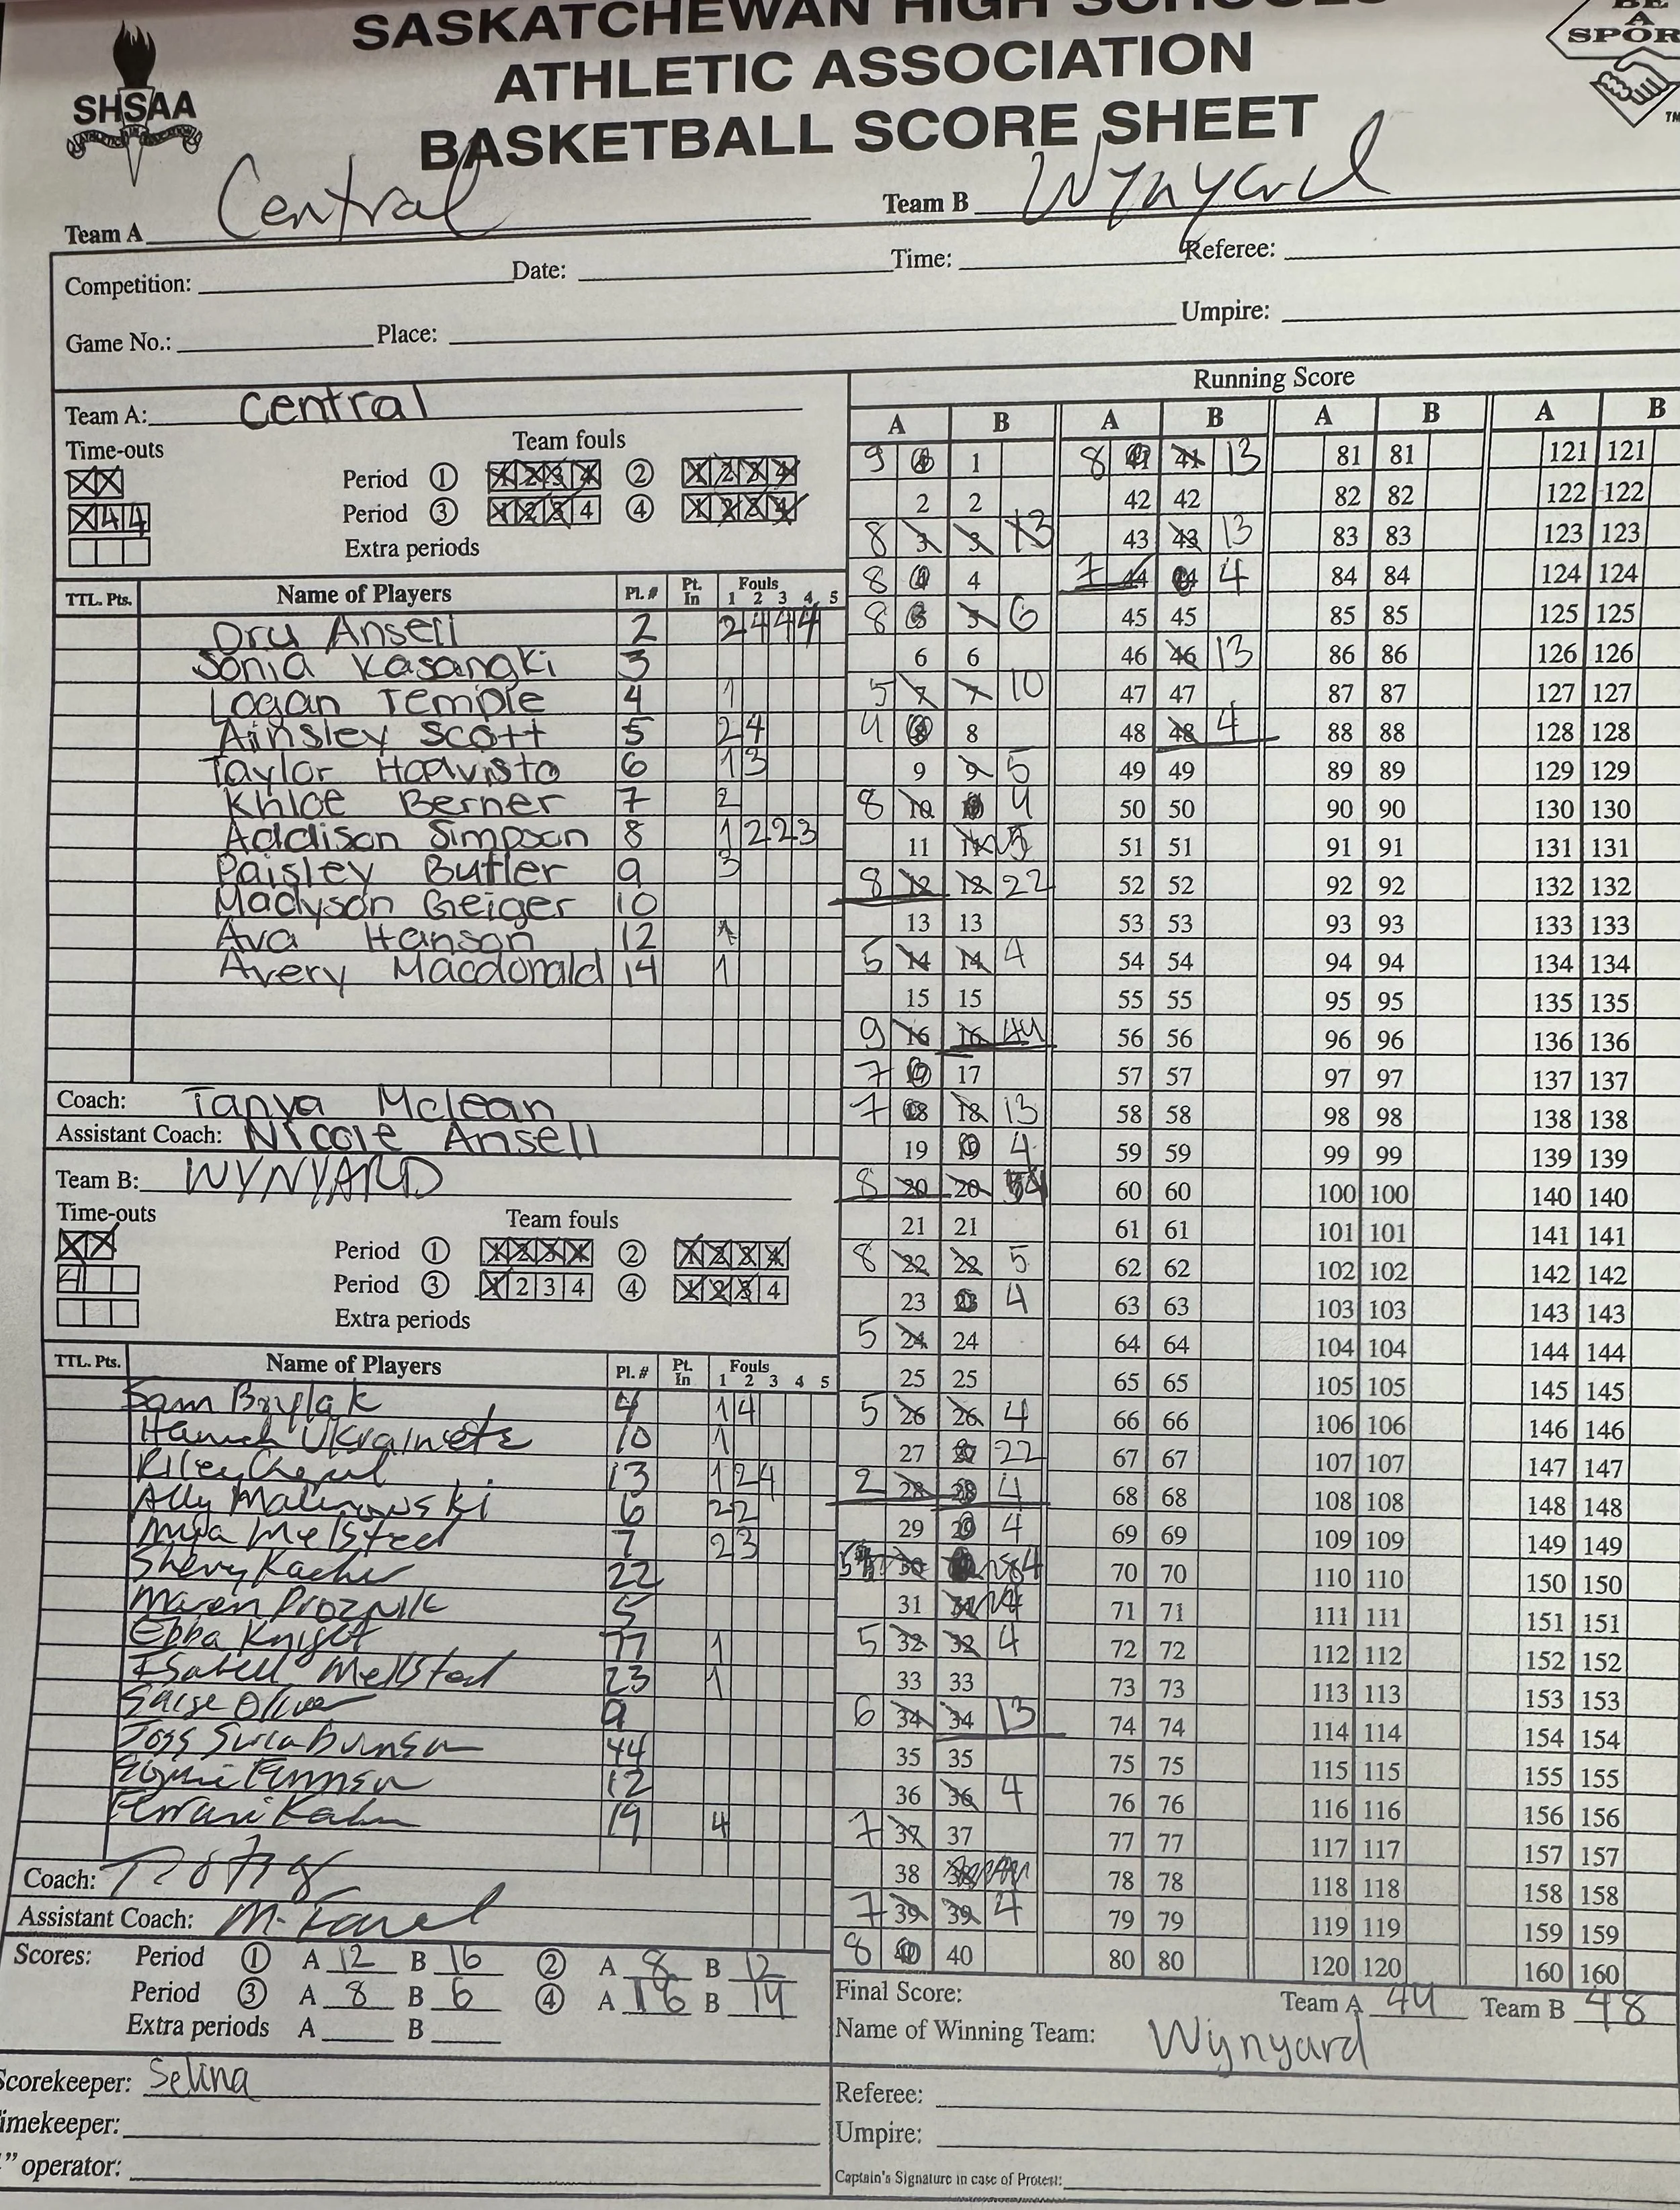 SASKATCHEWAN HIGH SCHOOLS
ATHLETIC ASSOCIATION
BASKETBALL SCORE SHEET
SHSAA
BE
A
SPOR
TM
Team A Central
Team B Wynyard
Competition:
Date:
Time:
Referee:
Game No.:
Place:
Umpire:
Team A: Central
Time-outs
Team fouls
Period 1 1 2 3 4 2 1 2 3 4
X X
Period 3 1 2 3 4 4 1 2 3 4
X 4 4
Extra periods
TTL. Pts. Name of Players Pl. # Pt. In Fouls 1 2 3 4 5
Dru Ansell 2 2 4 4 4
Sonia Kasangki 3
Logan Temple 4 1
Ainsley Scott 5 2 4
Taylor Haavisto 6 1 3
Khloe Berner 7 2
Addison Simpson 8 1 2 2 3
Paisley Butler 9 3
Madyson Geiger 10
Ava Hanson 12 1
Avery Macdonald 14 1
Coach: Tanya Mclean
Assistant Coach: Nicole Ansell
Team B: WYNYARD
Time-outs
Team fouls
Period 1 1 2 3 4 2 1 2 3 4
X X
Period 3 1 2 3 4 4 1 2 3 4
4
Extra periods
TTL. Pts. Name of Players Pl. # Pt. In Fouls 1 2 3 4 5
Sam 4 1 4
10 1
Riley 13 1 2 4
Ally Malinowski 6 2 2
Mya Melsted 7 2 3
22
Maren 5
Ebba Knight 77 1
Isabell Mellsted 23 1
Oliver 9
44
12
19 4
Coach:
Assistant Coach: M.
Scores: Period 1 A 12 B 16 2 A 8 B 12
Period 3 A 8 B 6 4 A 16 B 14
Extra periods A B
Scorekeeper: Selina
Timekeeper:
" operator:
Running Score
A B A B A B A B
9 1 1 8 41 41 13 81 81 121 121
2 2 42 42 82 82 122 122
8 3 3 13 43 43 13 83 83 123 123
8 4 4 7 44 44 4 84 84 124 124
8 5 5 6 45 45 85 85 125 125
6 6 46 46 13 86 86 126 126
5 7 7 10 47 47 87 87 127 127
4 8 8 48 48 4 88 88 128 128
9 9 5 49 49 89 89 129 129
8 10 10 4 50 50 90 90 130 130
11 11 5 51 51 91 91 131 131
8 12 12 22 52 52 92 92 132 132
13 13 53 53 93 93 133 133
5 14 14 4 54 54 94 94 134 134
15 15 55 55 95 95 135 135
9 16 16 44 56 56 96 96 136 136
7 17 17 57 57 97 97 137 137
7 18 18 13 58 58 98 98 138 138
19 19 4 59 59 99 99 139 139
8 20 20 60 60 100 100 140 140
21 21 61 61 101 101 141 141
8 22 22 5 62 62 102 102 142 142
23 23 4 63 63 103 103 143 143
5 24 24 64 64 104 104 144 144
25 25 65 65 105 105 145 145
5 26 26 4 66 66 106 106 146 146
27 27 22 67 67 107 107 147 147
2 28 28 4 68 68 108 108 148 148
29 29 4 69 69 109 109 149 149
5 30 4 70 70 110 110 150 150
31 31 71 71 111 111 151 151
5 32 32 4 72 72 112 112 152 152
33 33 73 73 113 113 153 153
6 34 34 13 74 74 114 114 154 154
35 35 75 75 115 115 155 155
36 36 4 76 76 116 116 156 156
7 37 37 77 77 117 117 157 157
38 38 78 78 118 118 158 158
7 39 39 4 79 79 119 119 159 159
8 40 40 80 80 120 120 160 160
Final Score: Team A 44 Team B 48
Name of Winning Team: Wynyard
Referee:
Umpire:
Captain's Signature in case of Protest: